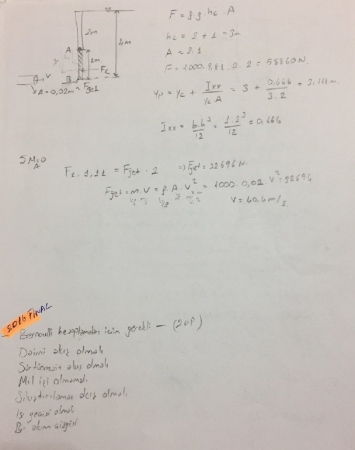 F = ρ.g. hc. A
hc = 2 + 1 = 3m
A = 2.1
F = 1000.9,81.3.2 = 58860N
yp = yc + Ixx / yc A = 3 + 0,666 / 3.2 = 3,111 m.
Ixx = b.h³ / 12 = 1.2³ / 12 = 0,666
2m
4m
A
2m
V
A = 0,02m²
Fjet
ΣMA=0
F1. 1,11 = Fjet. 2 ⇒ Fjet = 32696 N.
Fjet = m. V = ρ. A. V² = 1000. 0,02 V² = 32696
V = 40,4 m/s.
2016 FINAL
Bernoulli için gerekli — (20P)
Daimi akış olmalı
Sürtünmesiz akış olmalı
Mil işi olmamalı
Sıkıştırılamaz akış olmalı
olmalı
akım çizgisi